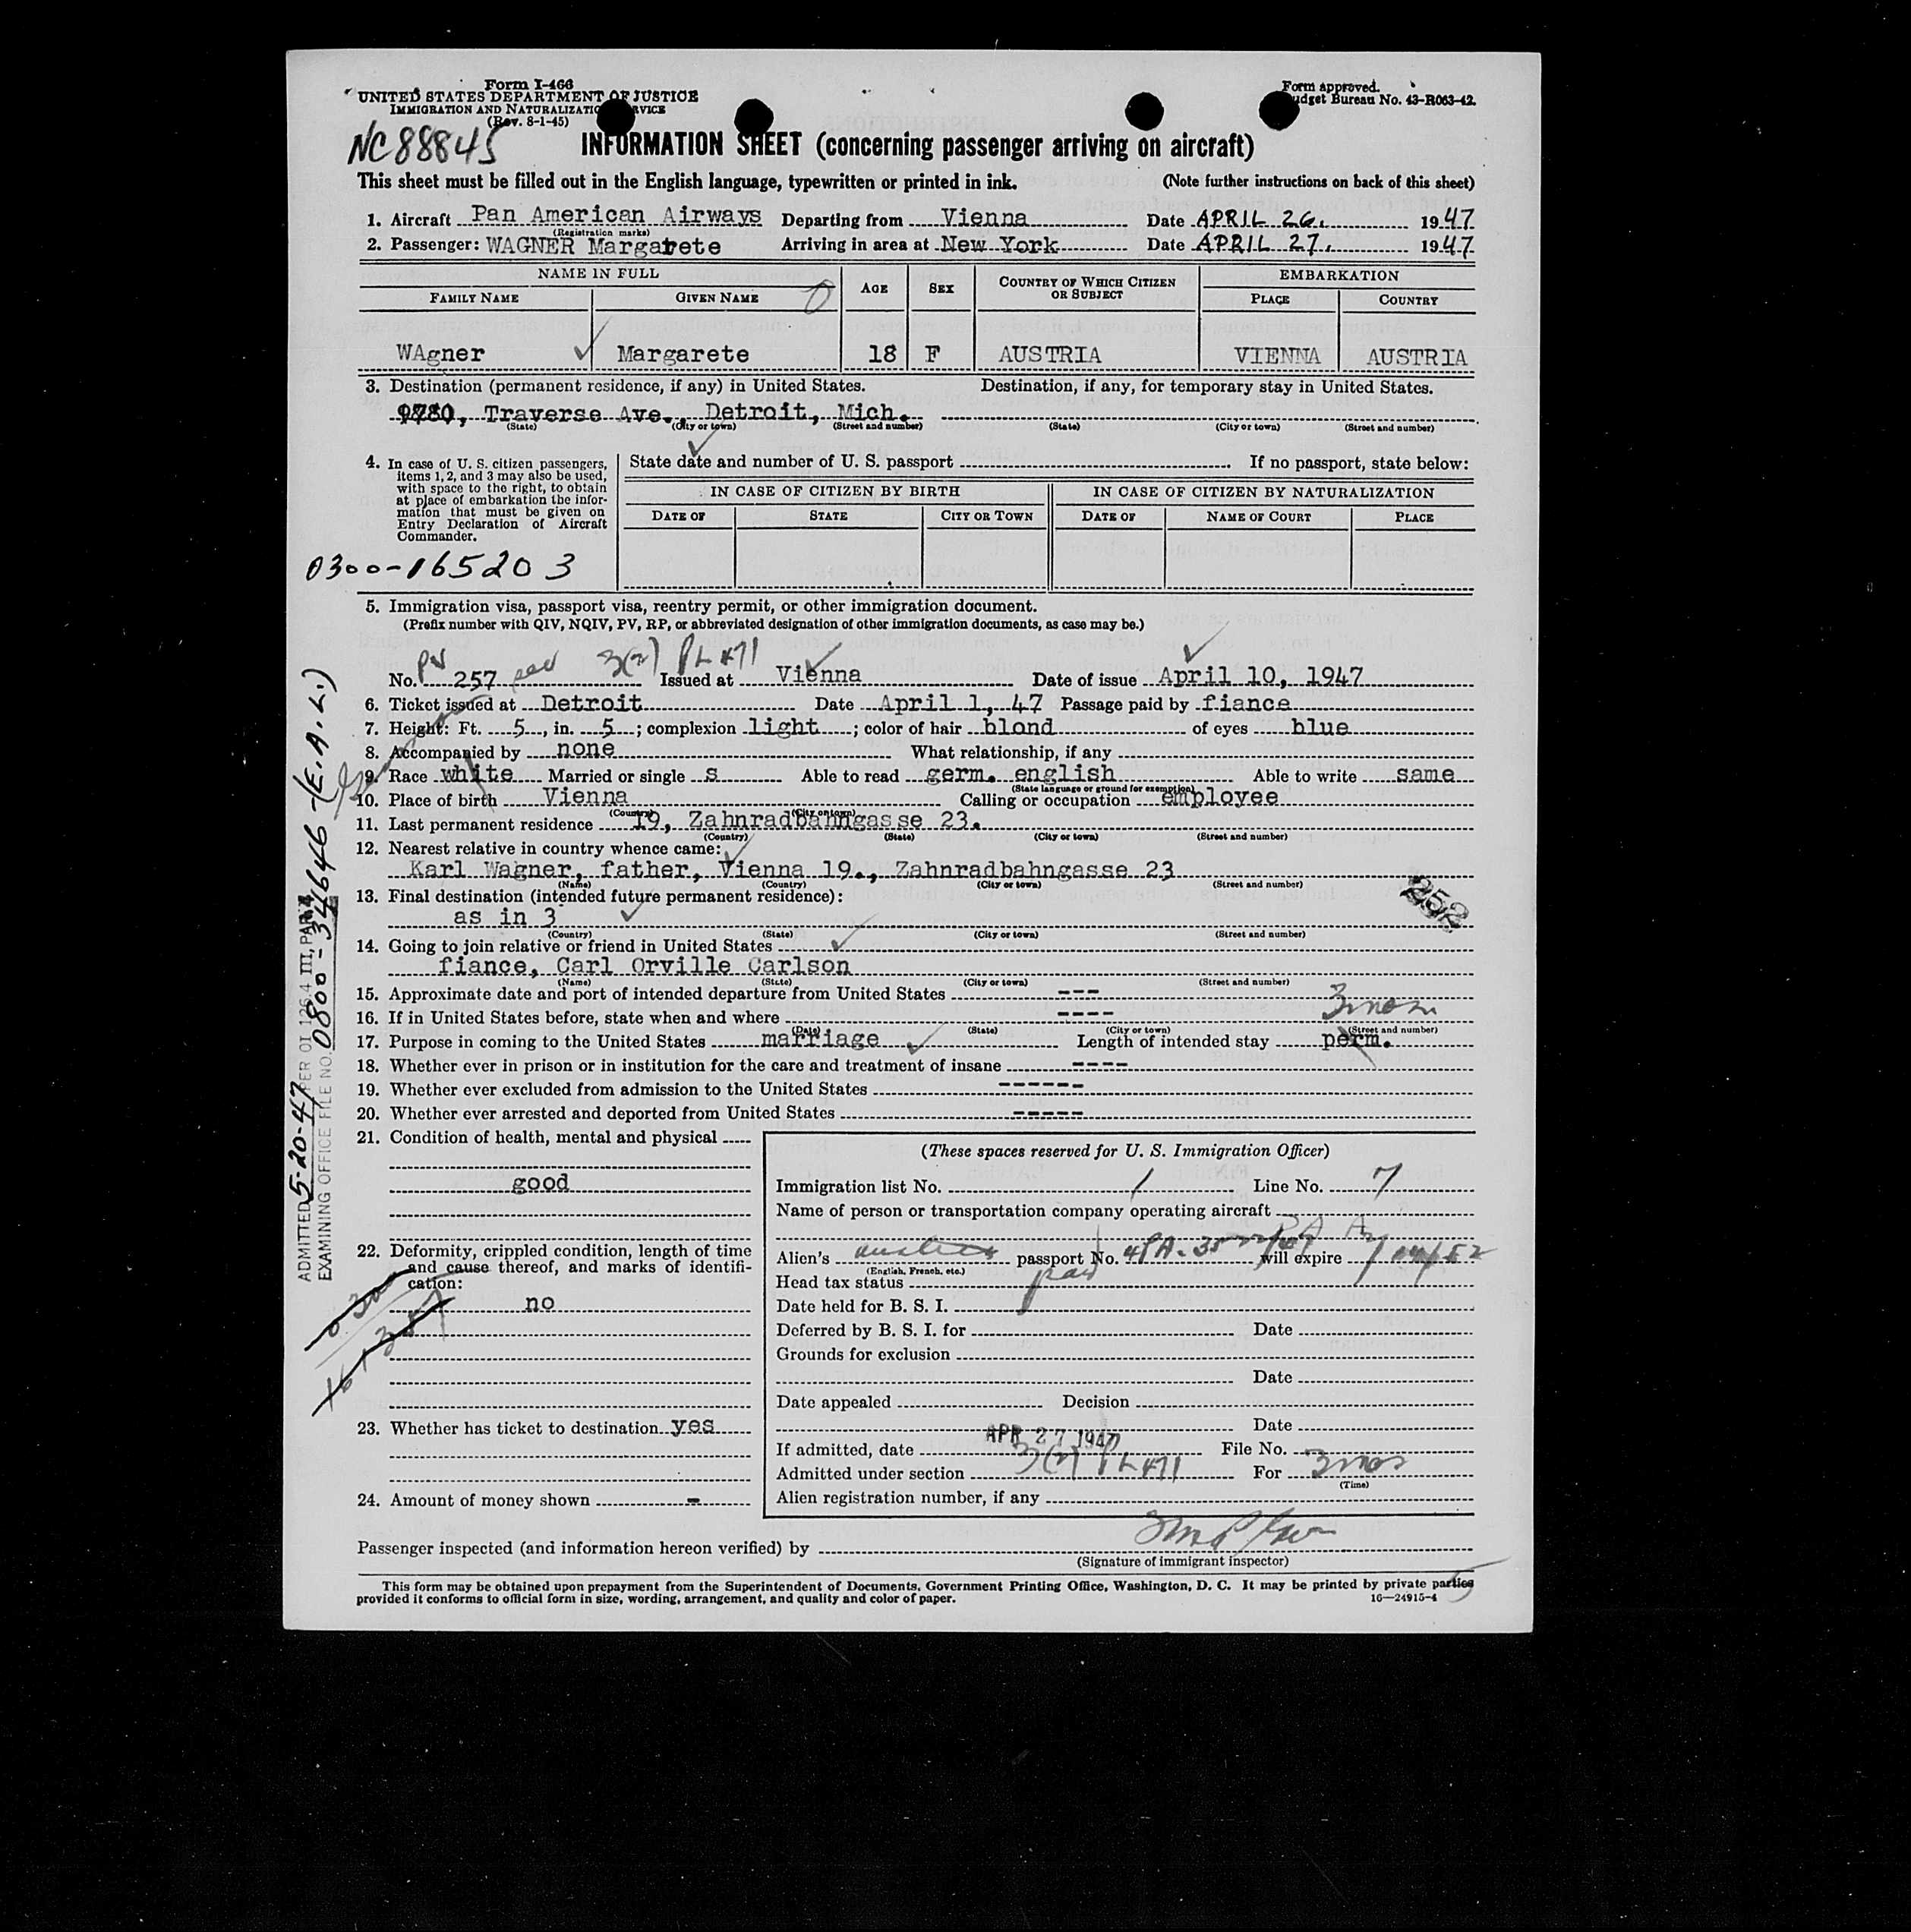 Form I-466
UNITED STATES DEPARTMENT OF JUSTICE
IMMIGRATION AND NATURALIZATION SERVICE
(Rev. 8-1-45)
Form approved.
Budget Bureau No. 43-R063-42.
NC88845
INFORMATION SHEET (concerning passenger arriving on aircraft)
This sheet must be filled out in the English language, typewritten or printed in ink. (Note further instructions on back of this sheet)
1. Aircraft Pan American Airways Departing from Vienna Date APRIL 26, 1947
(Registration marks)
2. Passenger: WAGNER Margarete Arriving in area at New York Date APRIL 27, 1947
NAME IN FULL AGE SEX COUNTRY OF WHICH CITIZEN OR SUBJECT EMBARKATION
FAMILY NAME GIVEN NAME PLACE COUNTRY
WAgner Margarete 18 F AUSTRIA VIENNA AUSTRIA
3. Destination (permanent residence, if any) in United States. Destination, if any, for temporary stay in United States.
9780, Traverse Ave., Detroit, Mich.
(State) (City or town) (Street and number) (State) (City or town) (Street and number)
4. In case of U. S. citizen passengers,
items 1, 2, and 3 may also be used,
with space to the right, to obtain
at place of embarkation the infor-
mation that must be given on
Entry Declaration of Aircraft
Commander.
State date and number of U. S. passport If no passport, state below:
IN CASE OF CITIZEN BY BIRTH IN CASE OF CITIZEN BY NATURALIZATION
DATE OF STATE CITY OR TOWN DATE OF NAME OF COURT PLACE
0300-165203
5. Immigration visa, passport visa, reentry permit, or other immigration document.
(Prefix number with QIV, NQIV, PV, RP, or abbreviated designation of other immigration documents, as case may be.)
PV 3(2) PL 471
No. 257 Issued at Vienna Date of issue April 10, 1947
6. Ticket issued at Detroit Date April 1, 47 Passage paid by fiance
7. Height: Ft. 5, in. 5; complexion light; color of hair blond of eyes blue
8. Accompanied by none What relationship, if any
9. Race white Married or single s Able to read germ. english Able to write same
(State language or ground for exemption)
10. Place of birth Vienna Calling or occupation employee
(Country) (City or town)
11. Last permanent residence 19, Zahnradbahngasse 23.
(Country) (State) (City or town) (Street and number)
12. Nearest relative in country whence came:
Karl Wagner, father, Vienna 19., Zahnradbahngasse 23
(Name) (Country) (City or town) (Street and number)
13. Final destination (intended future permanent residence):
252
as in 3
(Country) (State) (City or town) (Street and number)
14. Going to join relative or friend in United States
fiance, Carl Orville Carlson
(Name) (State) (City or town) (Street and number)
15. Approximate date and port of intended departure from United States ---
16. If in United States before, state when and where ---- 3 mos
(Date) (State) (City or town) (Street and number)
17. Purpose in coming to the United States marriage Length of intended stay perm.
18. Whether ever in prison or in institution for the care and treatment of insane ----
19. Whether ever excluded from admission to the United States ------
20. Whether ever arrested and deported from United States -----
21. Condition of health, mental and physical
good
22. Deformity, crippled condition, length of time
and cause thereof, and marks of identifi-
cation:
no
23. Whether has ticket to destination yes
24. Amount of money shown -
(These spaces reserved for U. S. Immigration Officer)
Immigration list No. 1 Line No. 7
Name of person or transportation company operating aircraft
P A A
Alien's passport No. will expire
(English, French, etc.)
Head tax status paid
Date held for B. S. I.
Deferred by B. S. I. for Date
Grounds for exclusion
Date
Date appealed Decision
Date
If admitted, date APR 27 1947 File No.
Admitted under section 3(2) PL 471 For 3 mos
(Time)
Alien registration number, if any
Passenger inspected (and information hereon verified) by
(Signature of immigrant inspector)
This form may be obtained upon prepayment from the Superintendent of Documents, Government Printing Office, Washington, D. C. It may be printed by private parties
provided it conforms to official form in size, wording, arrangement, and quality and color of paper. 16—24915-4
ADMITTED 5-20-47 PER OI 126.4 III, PAR 4
EXAMINING OFFICE FILE NO. 0800-34646-(E.A.L.)